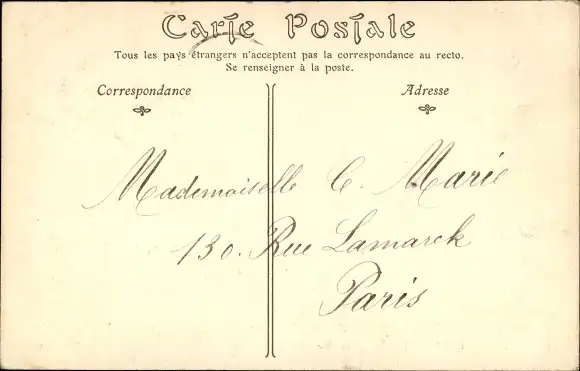 Carte Postale
Tous les pays étrangers n'acceptent pas la correspondance au recto.
Se renseigner à la poste.
Correspondance
Adresse
Mademoiselle C. Marie
130. Rue Lamarck
Paris